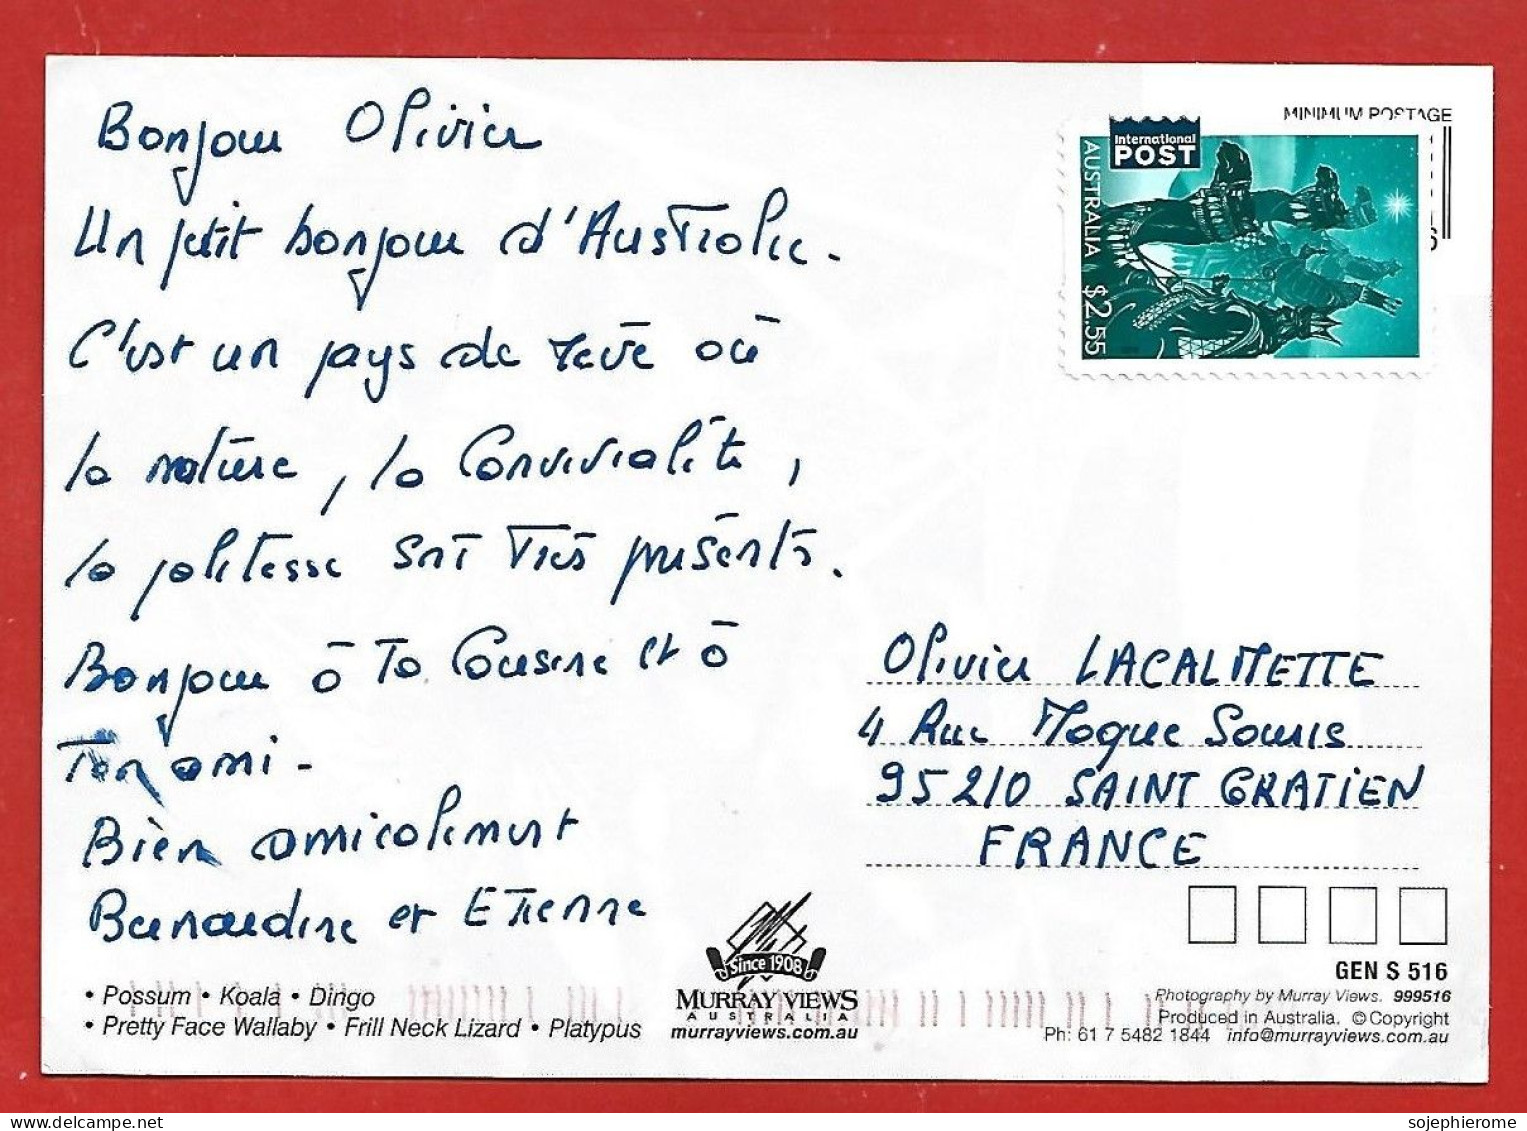 Bonjour Olivier
Un petit bonjour d'Australie.
C'est un pays de rêve où
la nature, la convivialité,
la politesse sont très présents.
Bonjour à Ta Cousine et à
Ton ami -
Bien amicalement
Bernardine et Etienne
MINIMUM POSTAGE
International
POST
AUSTRALIA $2.55
Olivier LACALMETTE
4 Rue Moque Souris
95210 SAINT GRATIEN
FRANCE
• Possum • Koala • Dingo
• Pretty Face Wallaby • Frill Neck Lizard • Platypus
Since 1908
MURRAY VIEWS
AUSTRALIA
murrayviews.com.au
GEN S 516
Photography by Murray Views. 999516
Produced in Australia. © Copyright
Ph: 61 7 5482 1844 info@murrayviews.com.au
delcampe.net
sojephierome